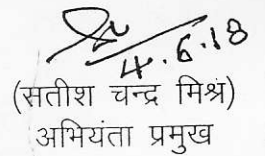 4.6.18
(सतीश चन्द्र मिश्र)
अभियंता प्रमुख